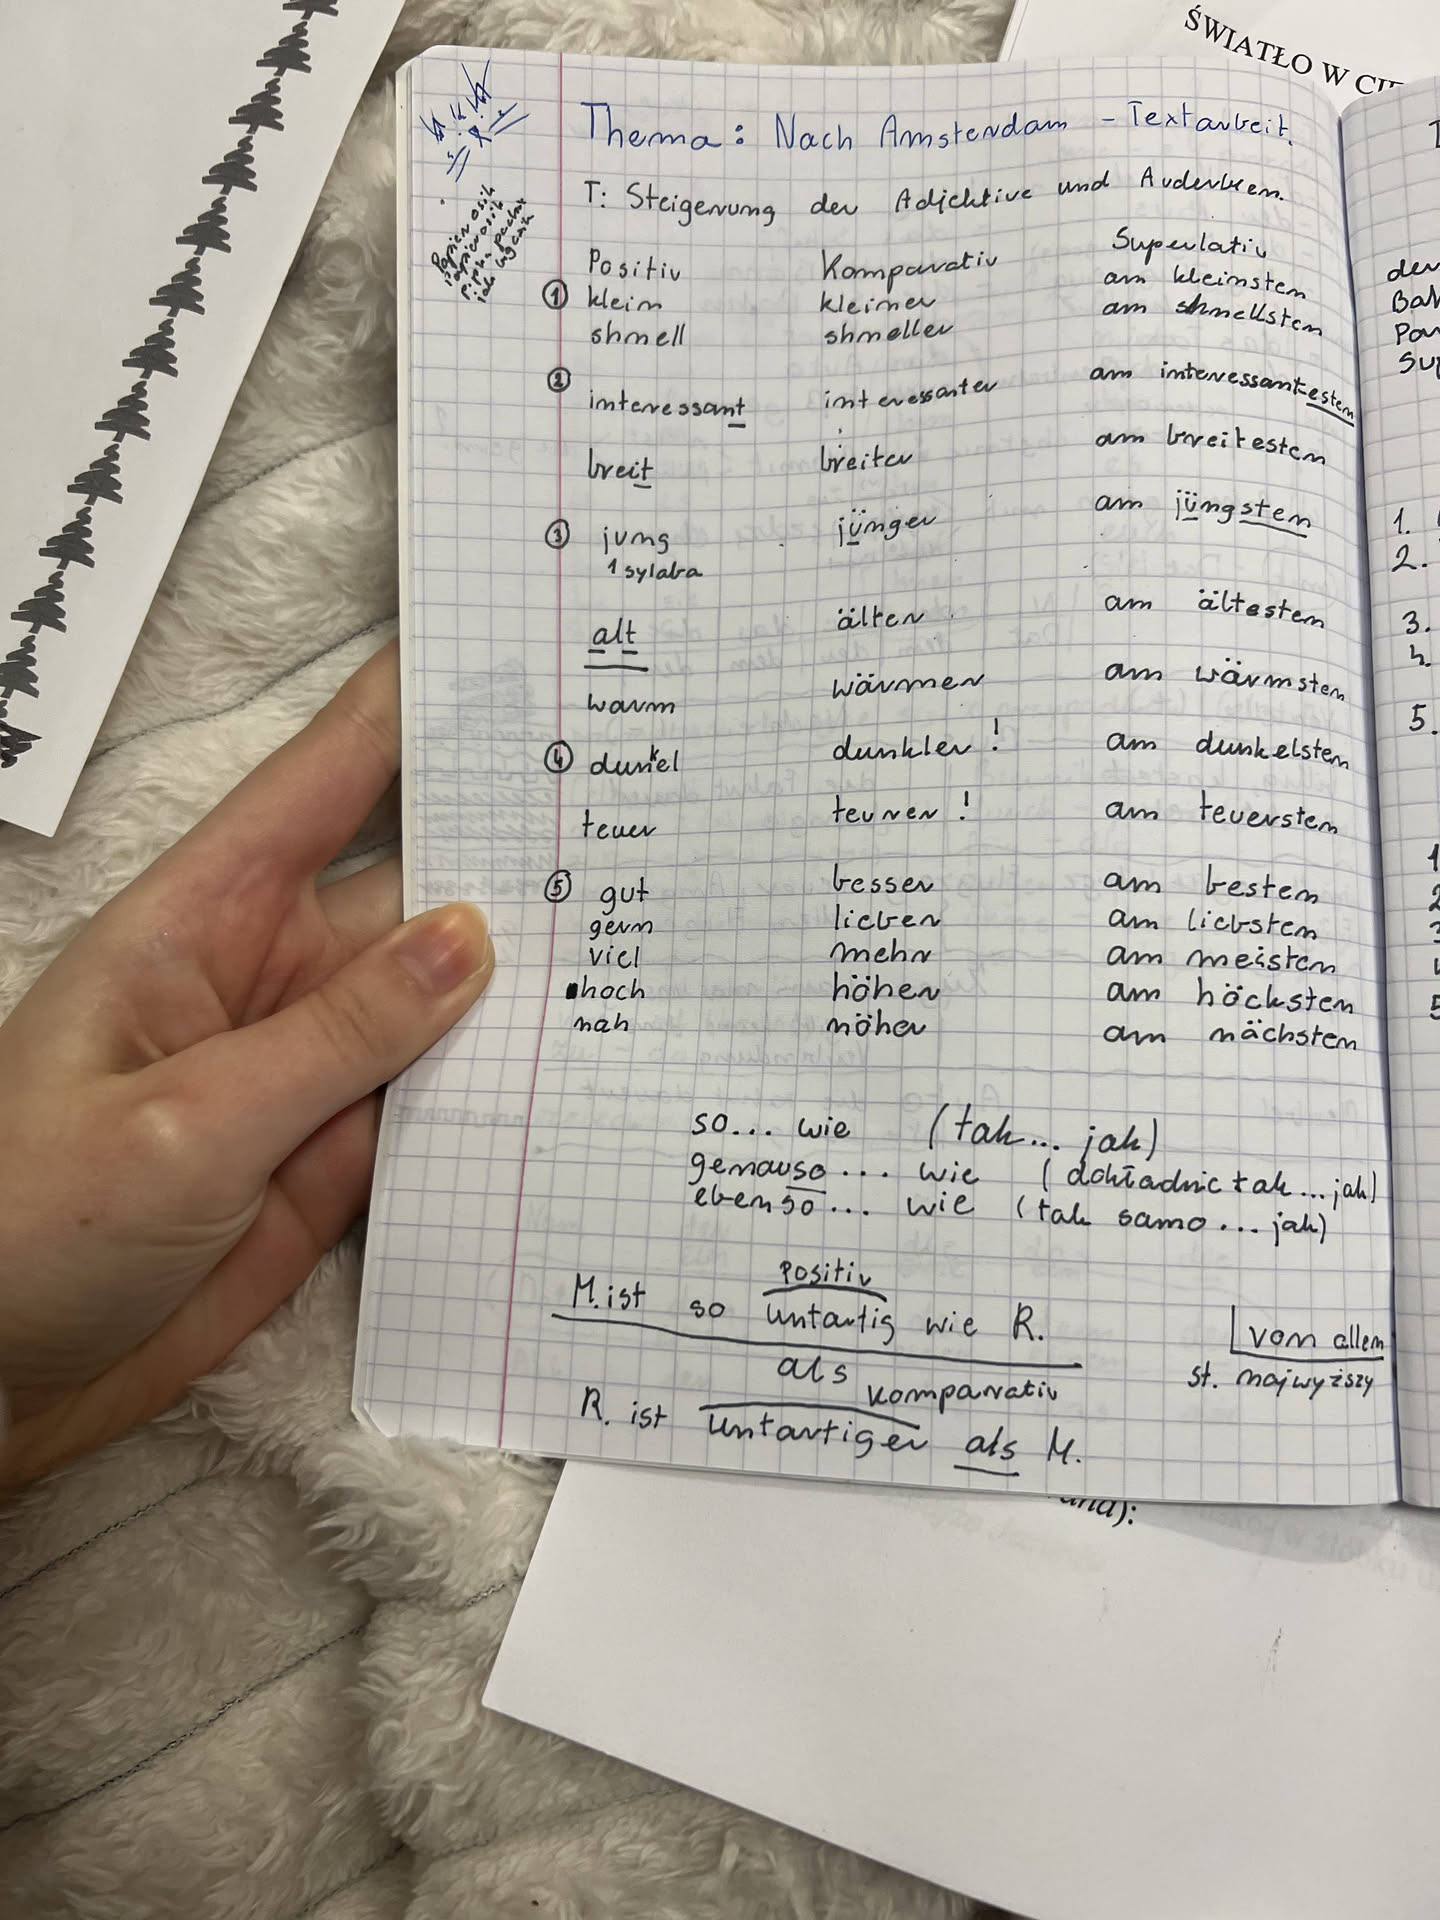 ŚWIATŁO W CIE
Thema: Nach Amsterdam - Textarbeit.
T: Steigerung der Adjektive und Auderben.
Positiv Komparativ Superlativ
① klein kleiner am kleinsten
shmell shmeller am shmellsten
② interessant interessanter am interessantesten
breit breiter am breitesten
③ jung jünger am jüngsten
1 sylaba
alt älter am ältesten
warm wärmer am wärmsten
④ dunkel dunkler! am dunkelsten
teuer teurer! am teuersten
⑤ gut besser am besten
gern lieber am liebsten
viel mehr am meisten
hoch höher am höcksten
nah nöher am nächsten
so... wie (tak... jak)
genauso... wie (dokładnie tak... jak)
ebenso... wie (tak samo... jak)
positiv
M. ist so untartig wie R.
als
komparativ
R. ist untartiger als M.
von allen
st. najwyższy
der
1.
2.
3.
4.
5.